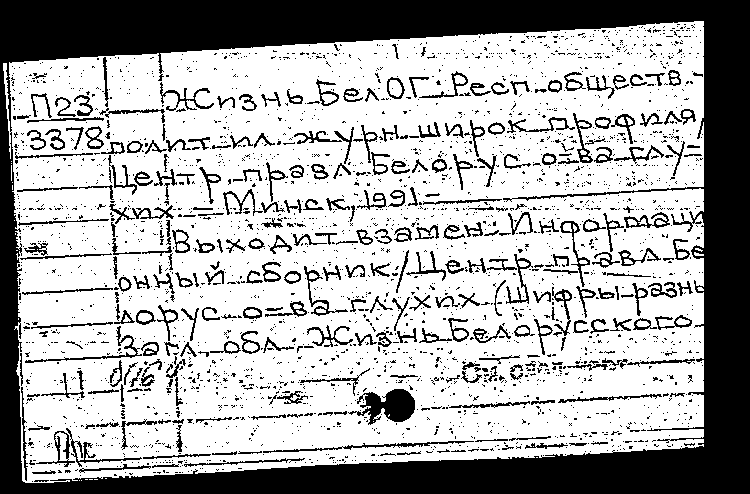 П23 Жизнь БелОГ: Респ. обществ.-
3378 полит. ил. журн. широк. профиля/
Центр. правл. Белорус. о-ва глу-
хих. – Минск, 1991 –
Выходит взамен: Информаци
онный сборник / Центр. правл. Бе
лорус. о-ва глухих (Шифры разн
Загл. обл.: Жизнь Белорусского
11
См.